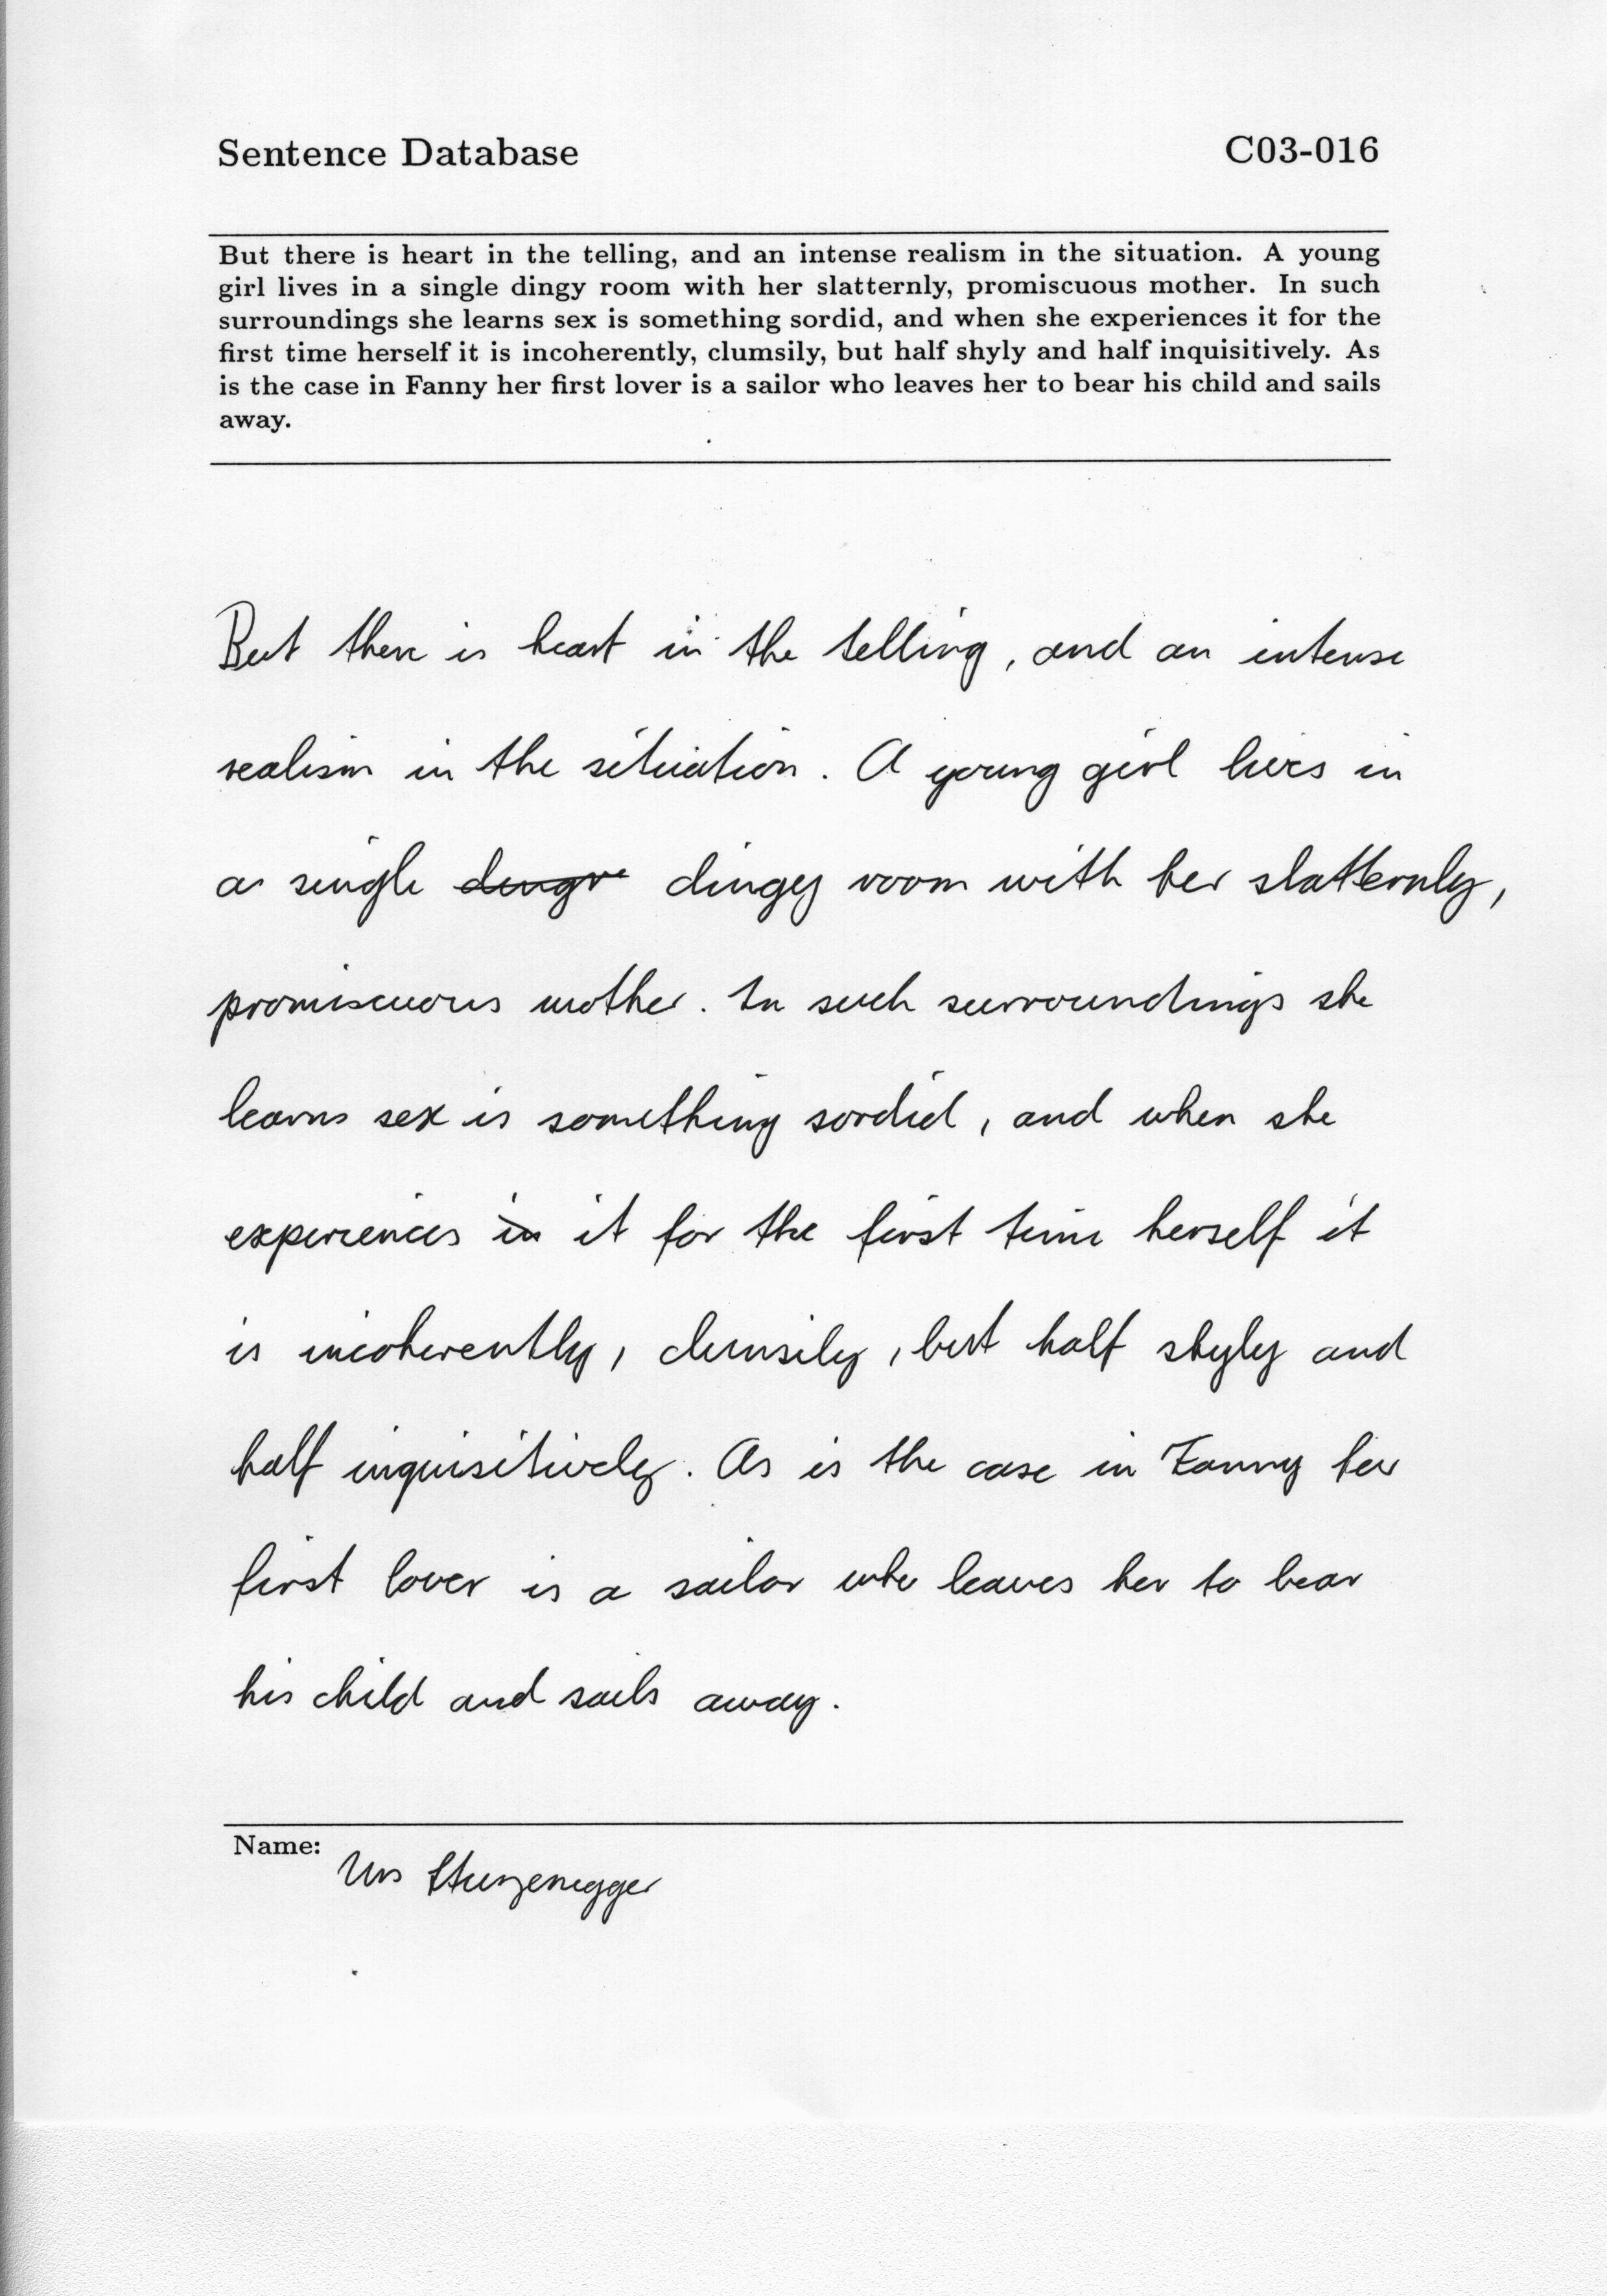 Sentence Database C03-016
But there is heart in the telling, and an intense realism in the situation. A young
girl lives in a single dingy room with her slatternly, promiscuous mother. In such
surroundings she learns sex is something sordid, and when she experiences it for the
first time herself it is incoherently, clumsily, but half shyly and half inquisitively. As
is the case in Fanny her first lover is a sailor who leaves her to bear his child and sails
away.
But there is heart in the telling, and an intense
realism in the situation. A young girl lives in
a single dingy room with her slatternly,
promiscuous mother. In such surroundings she
learns sex is something sordid, and when she
experiences in it for the first time herself it
is incoherently, clumsily, but half shyly and
half inquisitively. As is the case in Fanny her
first lover is a sailor who leaves her to bear
his child and sails away.
Name:
Urs Sturzenegger